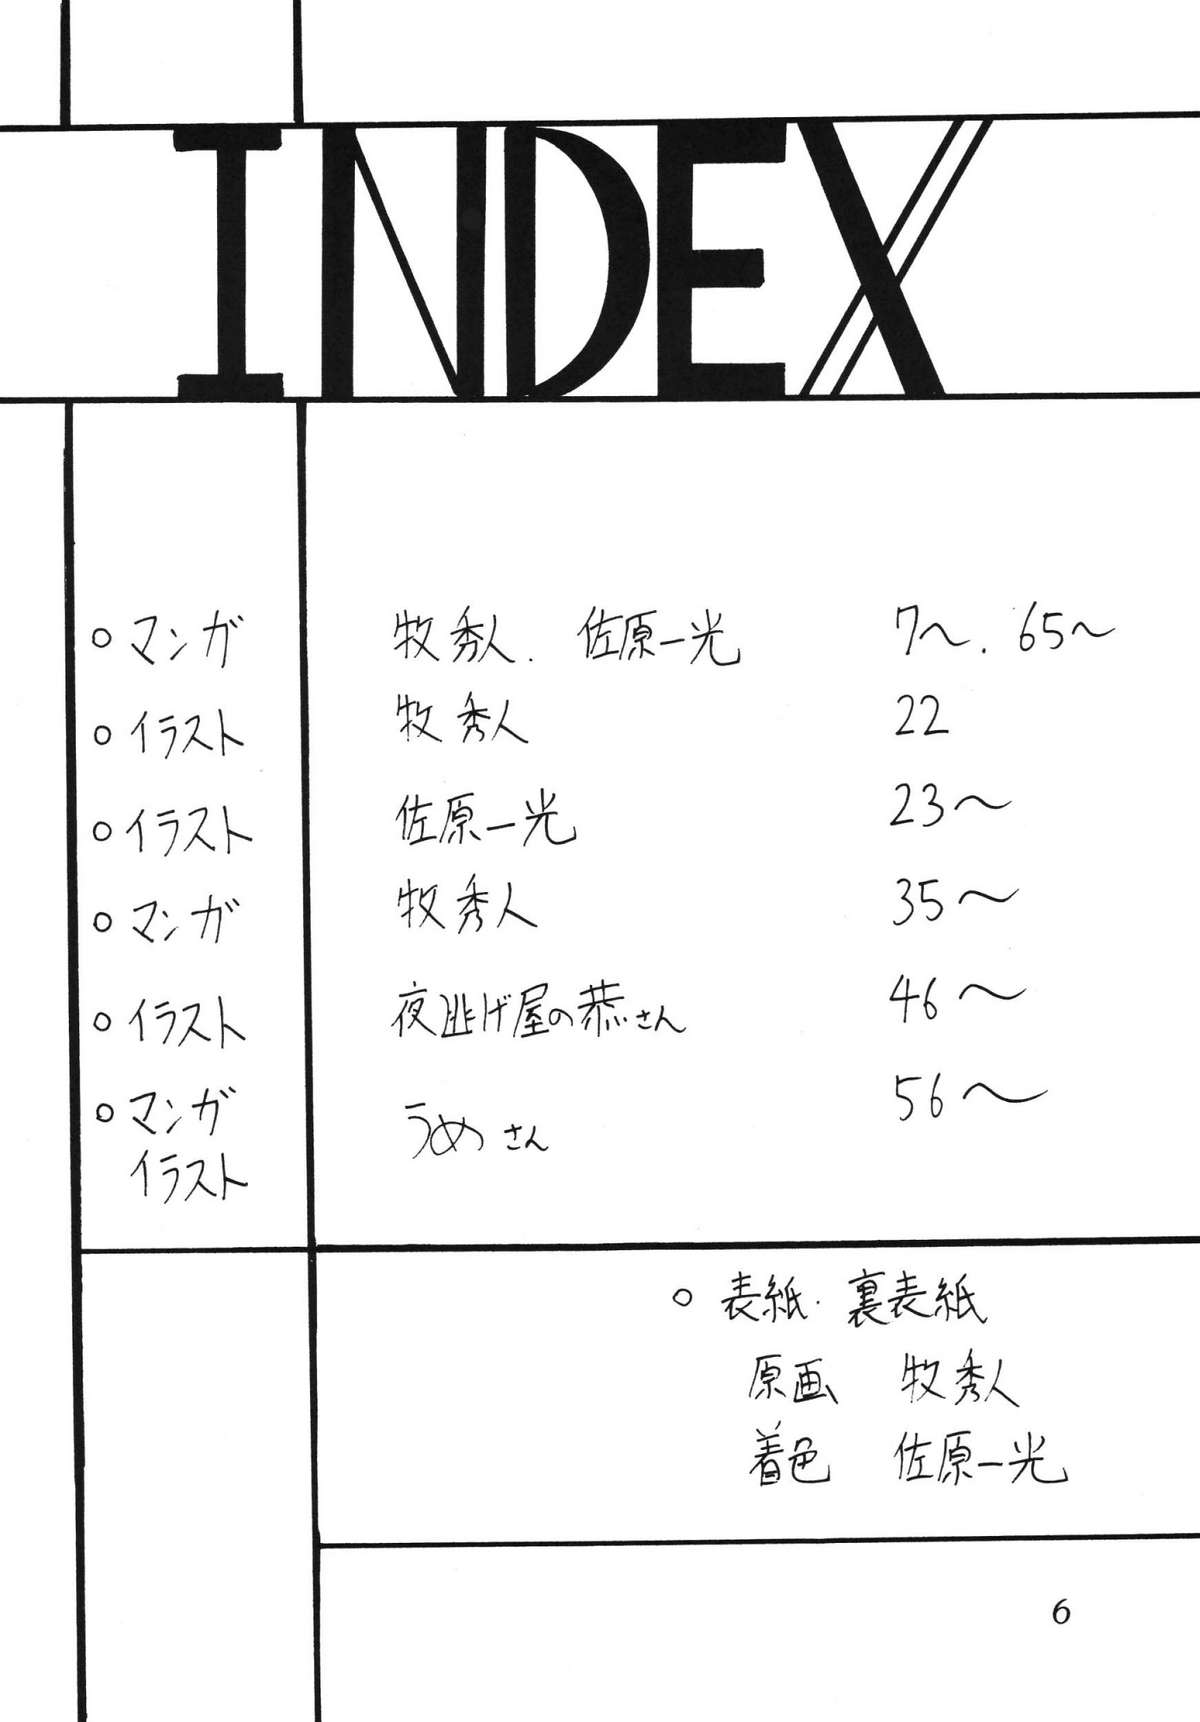 INDEX
○マンガ 牧秀人. 佐原一光 7〜. 65〜
○イラスト 牧秀人 22
○イラスト 佐原一光 23〜
○マンガ 牧秀人 35〜
○イラスト 夜逃げ屋の恭さん 46〜
○マンガ うめさん 56〜
イラスト
○表紙・裏表紙
原画 牧秀人
着色 佐原一光
6